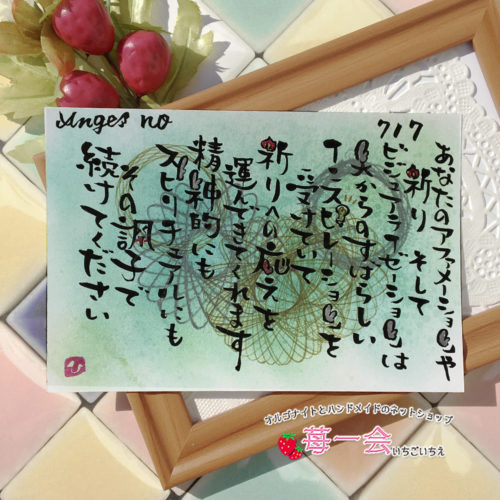 Anges no
717
あなたのアファメーションや
祈り そして
ビジュアライゼーションは
天からのすばらしい
インスピレーションを
受けていて
祈りへの応えを
運んできてくれます
精神的にも
スピリチュアルにも
その調子で
続けてください
オルゴナイトとハンドメイドのネットショップ
苺一会 いちごいちえ